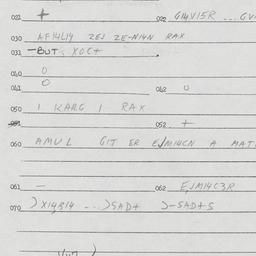 021 + 022 G14V15R ... GV
030 AF14L14 ZEJ ZE-N14N RAX
031 -BUT XOC+
040 O
041 O 042 O
050 I KARG I RAX
052 +
060 AMUL GIT ER EJM14CN A MAT
061 - 062 EJM14C3R
070 )X14R14 ...)SAD+ )-SAD+S